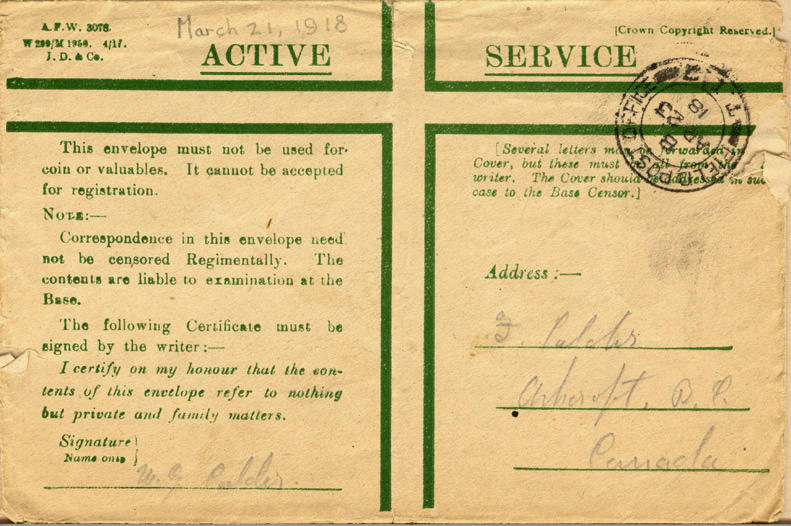 A.F.W. 3078.
W 299/M 1950. 4/17.
J. D. & Co.
March 21, 1918
[Crown Copyright Reserved.]
ACTIVE SERVICE
This envelope must not be used for
coin or valuables. It cannot be accepted
for registration.
NOTE:—
Correspondence in this envelope need
not be censored Regimentally. The
contents are liable to examination at the
Base.
The following Certificate must be
signed by the writer:—
I certify on my honour that the con-
tents of this envelope refer to nothing
but private and family matters.
Signature
Name only
W. G. Calder.
FIELD POST OFFICE
AP
18
[Several letters may be forwarded in
Cover, but these must all from
writer. The Cover should be addressed in such
case to the Base Censor.]
Address:—
Calder
Ashcroft, B.C.
Canada